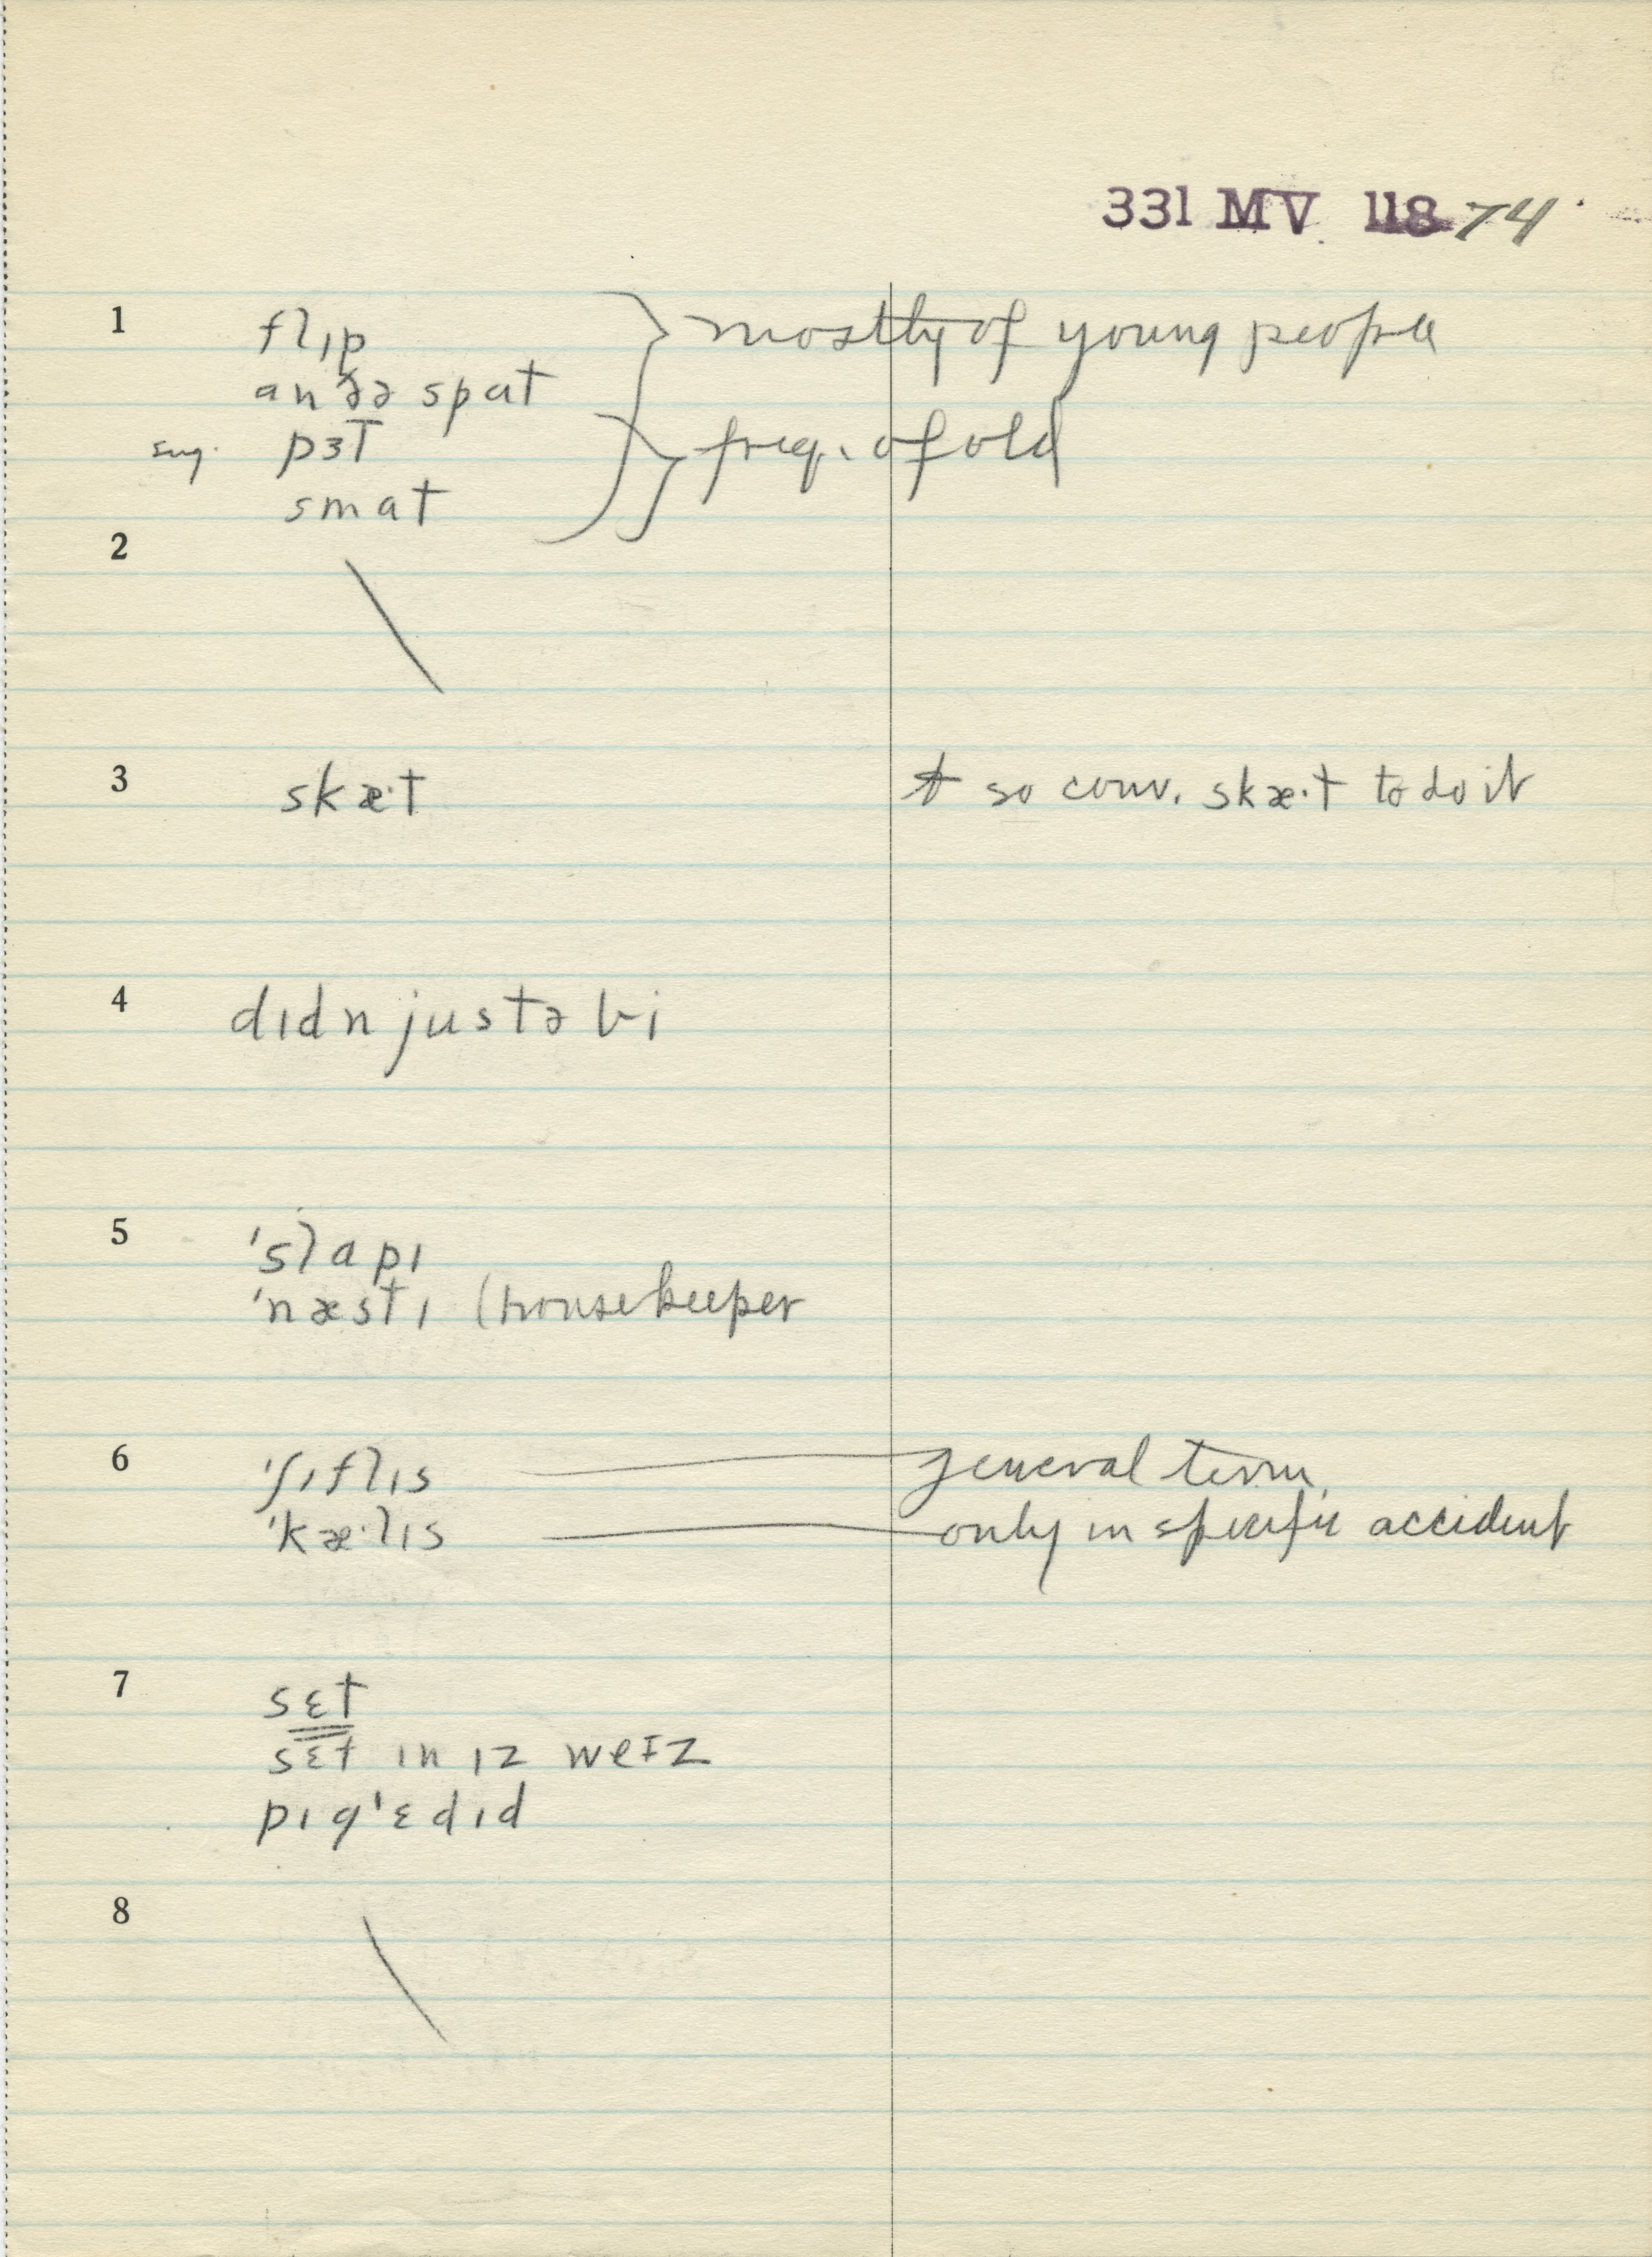 331 MV 118 74
1 flɪp } mostly of young people
an ðə spɑt
sug. pɜt } freq. of old
smɑt
2
3 skæ·t so conv. skæ·t to do it
4 dɪdn justə bi
5 'slɑpɪ
'næstɪ (housekeeper
6 'ʃɪflɪs general term
'kæ·lɪs only in specific accident
7 sɛt
sɛt ɪn ɪz weɪz
pɪg'ɛdɪd
8